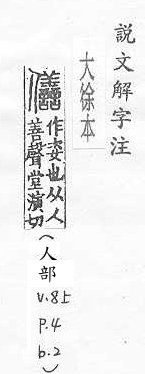 說文解字注
大徐本
僐
作姿也从人
善聲堂演切
(人部
v.8上
p.4
b.2)